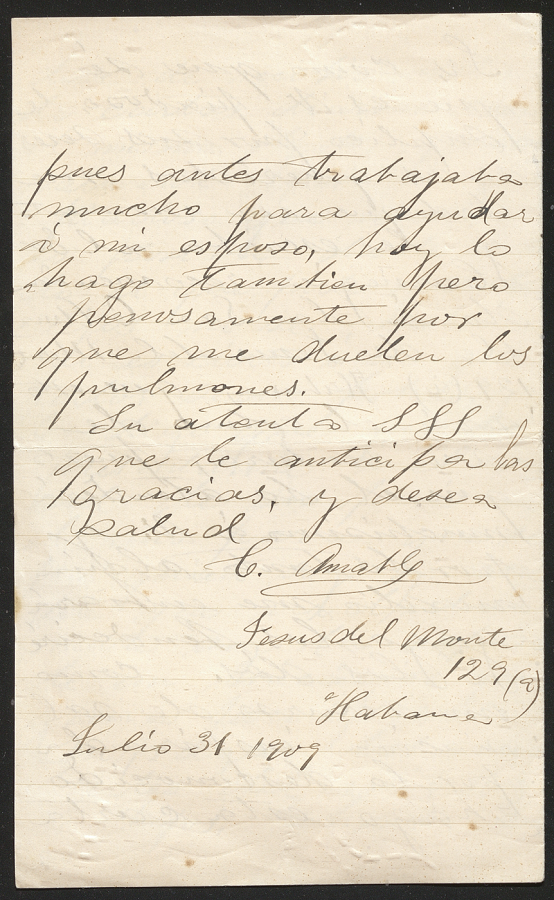 pues antes trabajaba
mucho para ayudar
á mi esposo, hoy lo
hago tambien pero
penosamente por
que me duelen los
pulmones.
Su atenta SSS
que le anticipa las
gracias, y desea
salud
C. Amable
Jesus del Monte
129 (a)
Habana
Julio 31 1909